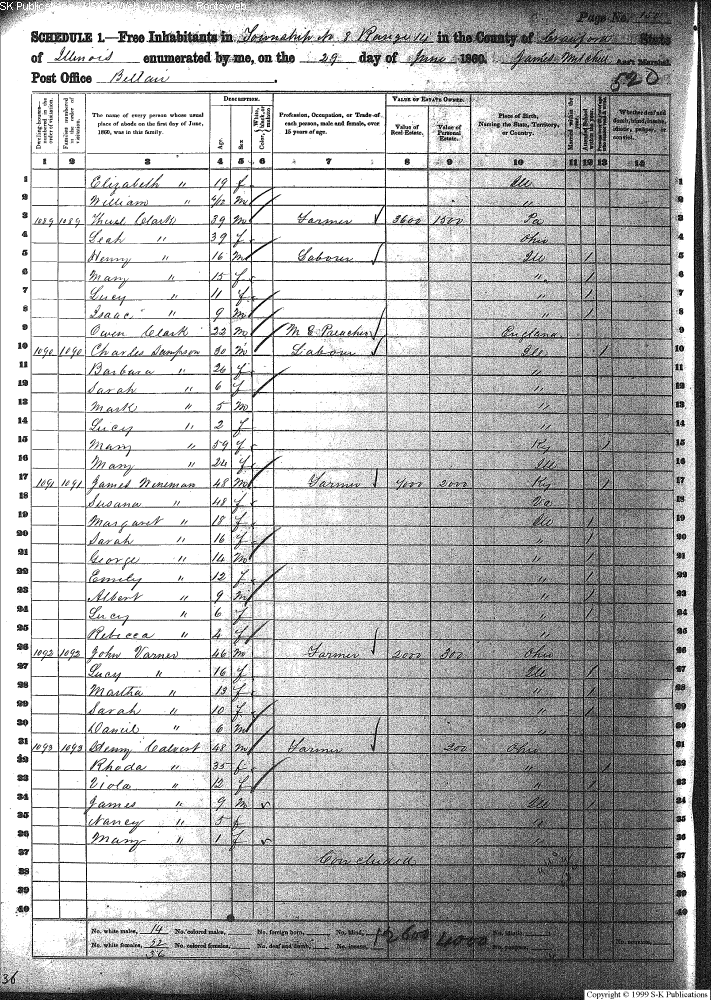 SK Publications
Page No.
SCHEDULE 1.—Free Inhabitants in Township No 8 Range 14 in the County of Crawford State
of Illinois enumerated by me, on the 29 day of June 1860. James Mitchell Ass't Marshal.
Post Office Bellair 520
Dwelling-houses—numbered in the order of visitation.
Families numbered in the order of visitation.
The name of every person whose usual place of abode on the first day of June, 1860, was in this family.
DESCRIPTION.
Age.
Sex
Color, White, black, or mulatto
Profession, Occupation, or Trade of each person, male and female, over 15 years of age.
VALUE OF ESTATE OWNED.
Value of Real Estate.
Value of Personal Estate.
Place of Birth, Naming the State, Territory, or Country.
Married within the year.
Attended School within the year.
Whether deaf and dumb, blind, insane, idiotic, pauper, or convict.
1 2 3 4 5 6 7 8 9 10 11 12 13 14
1 Elizabeth " 19 f Ill 1
2 William " m " 2
3 1089 1089 Clark 39 m Farmer 3600 1500 Pa 3
4 Leah " 39 f Ohio 4
5 Henry " 16 m Laborer Ill 1 5
6 Mary " 15 f " 1 6
7 Lucy " 11 f " 1 7
8 Isaac " 9 m " 1 8
9 Owen Clark 22 m M E Preacher England 9
10 1090 1090 Charles Sampson 30 m Laborer Ill 1 10
11 Barbara " 26 f " 11
12 Sarah " 6 f " 12
13 Mark " 5 m " 13
14 Lucy " 2 f " 14
15 Mary " 59 f Ky 1 15
16 Mary " 24 f Ill 16
17 1091 1091 James Wineman 48 m Farmer 7000 2000 Ky 1 17
18 Susana " 48 f Va 18
19 Margaret " 18 f Ill 1 19
20 Sarah " 16 f " 1 20
21 George " 14 m " 1 21
22 Emily " 12 f " 1 22
23 Albert " 9 m " 1 23
24 Lucy " 6 f " 1 24
25 Rebicca " 4 f " 25
26 1092 1092 John Varner 46 m Farmer 2000 300 Ohio 26
27 Lucy " 16 f Ill 1 27
28 Martha " 13 f " 1 28
29 Sarah " 10 f " 1 29
30 Daniel " 6 m " 30
31 1093 1093 Henry Calvert 48 m Farmer 200 Ohio 31
32 Rhoda " 35 f " 1 32
33 Viola " 12 f " 1 33
34 James " 9 m Ill 1 34
35 Nancy " 5 f " 35
36 Mary " 1 f " 36
37 Concluded 37
38 38
39 39
40 40
No. white males, 14 No. colored males, No. foreign born, No. blind, 12600 4000 No. idiotic,
No. white females, 22 No. colored females, No. deaf and dumb, No. insane, No. paupers, No. convicts,
36
36
Copyright © 1999 S-K Publications